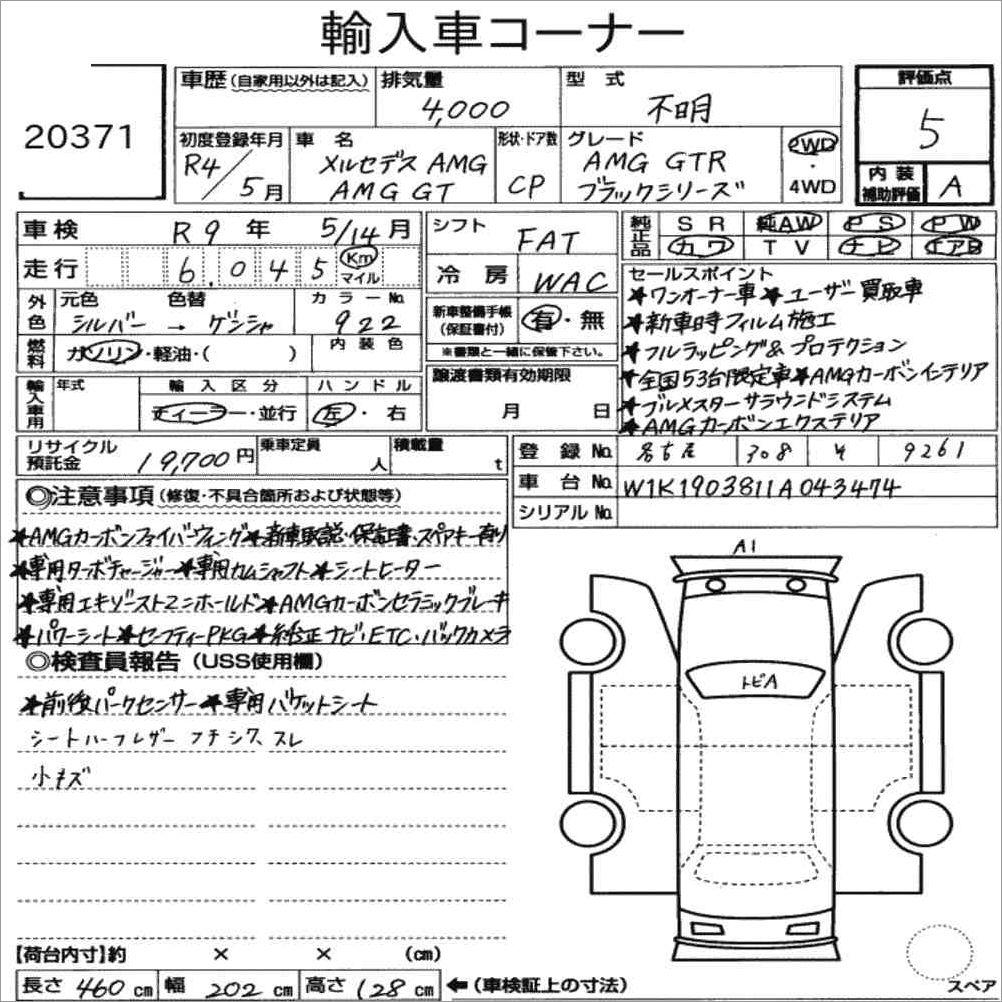 輸入車コーナー
20371
車歴(自家用以外は記入) 排気量 型 式 評価点
4,000 不明 5
初度登録年月 車 名 形状・ドア数 グレード 2WD・4WD
R4/5月 メルセデスAMG AMG GT CP AMG GTR ブラックシリーズ
内装補助評価 A
車検 R9年 5/14月
シフト FAT
純正品 SR 純AW PS PW
カワ TV ナビ エアB
走行 6,045 Km マイル
冷房 WAC
外色 元色 色替 カラーNo.
シルバー → ゲンシャ 922
新車整備手帳(保証書付) 有・無
※書類と一緒に保管下さい。
燃料 ガソリン・軽油・( ) 内装色
セールスポイント
★ワンオーナー車★ユーザー買取車
★新車時フィルム施工
★フルラッピング&プロテクション
★全国53台限定車★AMGカーボンインテリア
★ブルメスターサラウンドシステム
★AMGカーボンエクステリア
輸入車用 年式 輸入区分 ハンドル
ディーラー・並行 左・右
譲渡書類有効期限
月 日
リサイクル預託金 19,700円 乗車定員 人 積載量 t
登録No. 名古屋 308 そ 9261
車台No. W1K1903811A043474
シリアルNo.
◎注意事項(修復・不具合箇所および状態等)
★AMGカーボンファイバーウィング★新車取説・保証書・スペアキー有り
★専用ターボチャージャー★専用カムシャフト★シートヒーター
★専用エキゾーストマニホールド★AMGカーボンセラミックブレーキ
★パワーシート★セーフティーPKG★純正ナビ・ETC・バックカメラ
◎検査員報告(USS使用欄)
★前後パークセンサー★専用バケットシート
シートハーフレザー フチシワ、スレ
小キズ
A1
トビA
【荷台内寸】約 × × (cm)
長さ 460 cm 幅 202 cm 高さ 128 cm ←(車検証上の寸法)
スペア